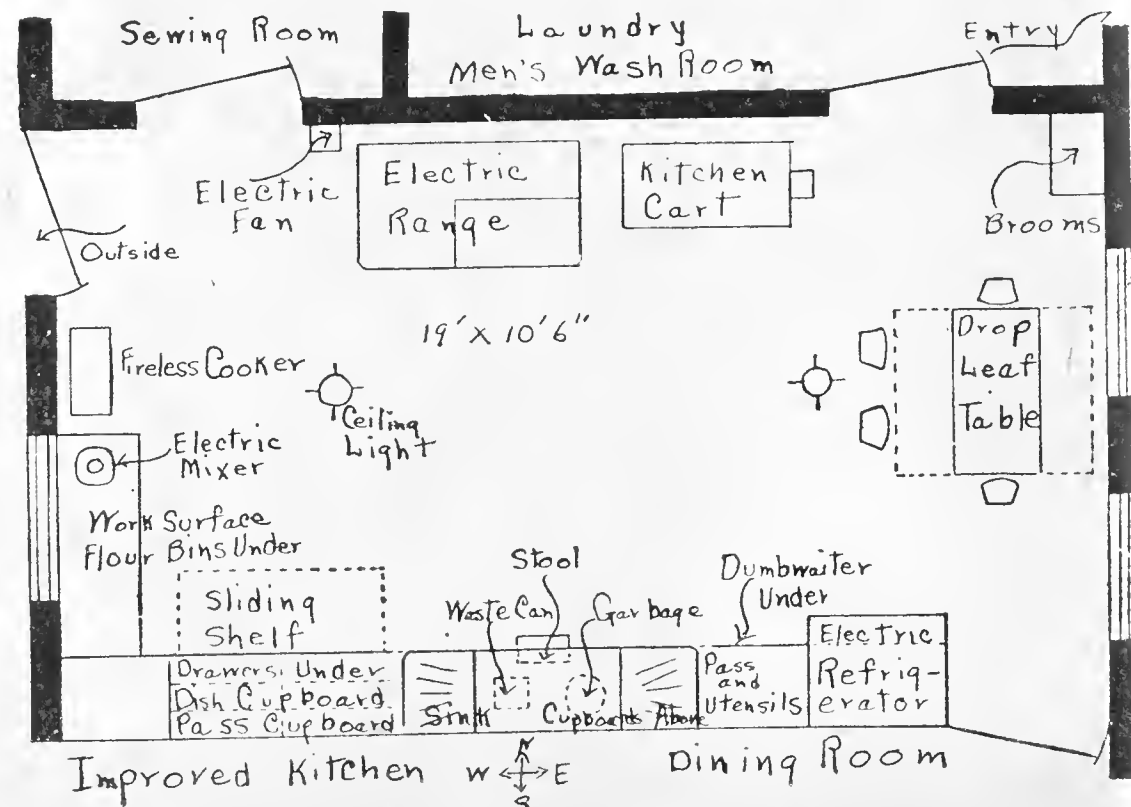 Sewing Room
Laundry
Men's Wash Room
Entry
Electric
Fan
Electric
Range
Kitchen
Cart
Brooms
Outside
19' X 10' 6"
Fireless Cooker
Ceiling
Light
Drop
Leaf
Table
Electric
Mixer
Work Surface
Flour Bins Under
Sliding
Shelf
Stool
Waste Can
Garbage
Dumbwaiter
Under
Drawers Under
Dish Cupboard
Pass Cupboard
Sink
Cupboards Above
Pass
and
Utensils
Electric
Refrig-
erator
Improved Kitchen
N
W E
S
Dining Room